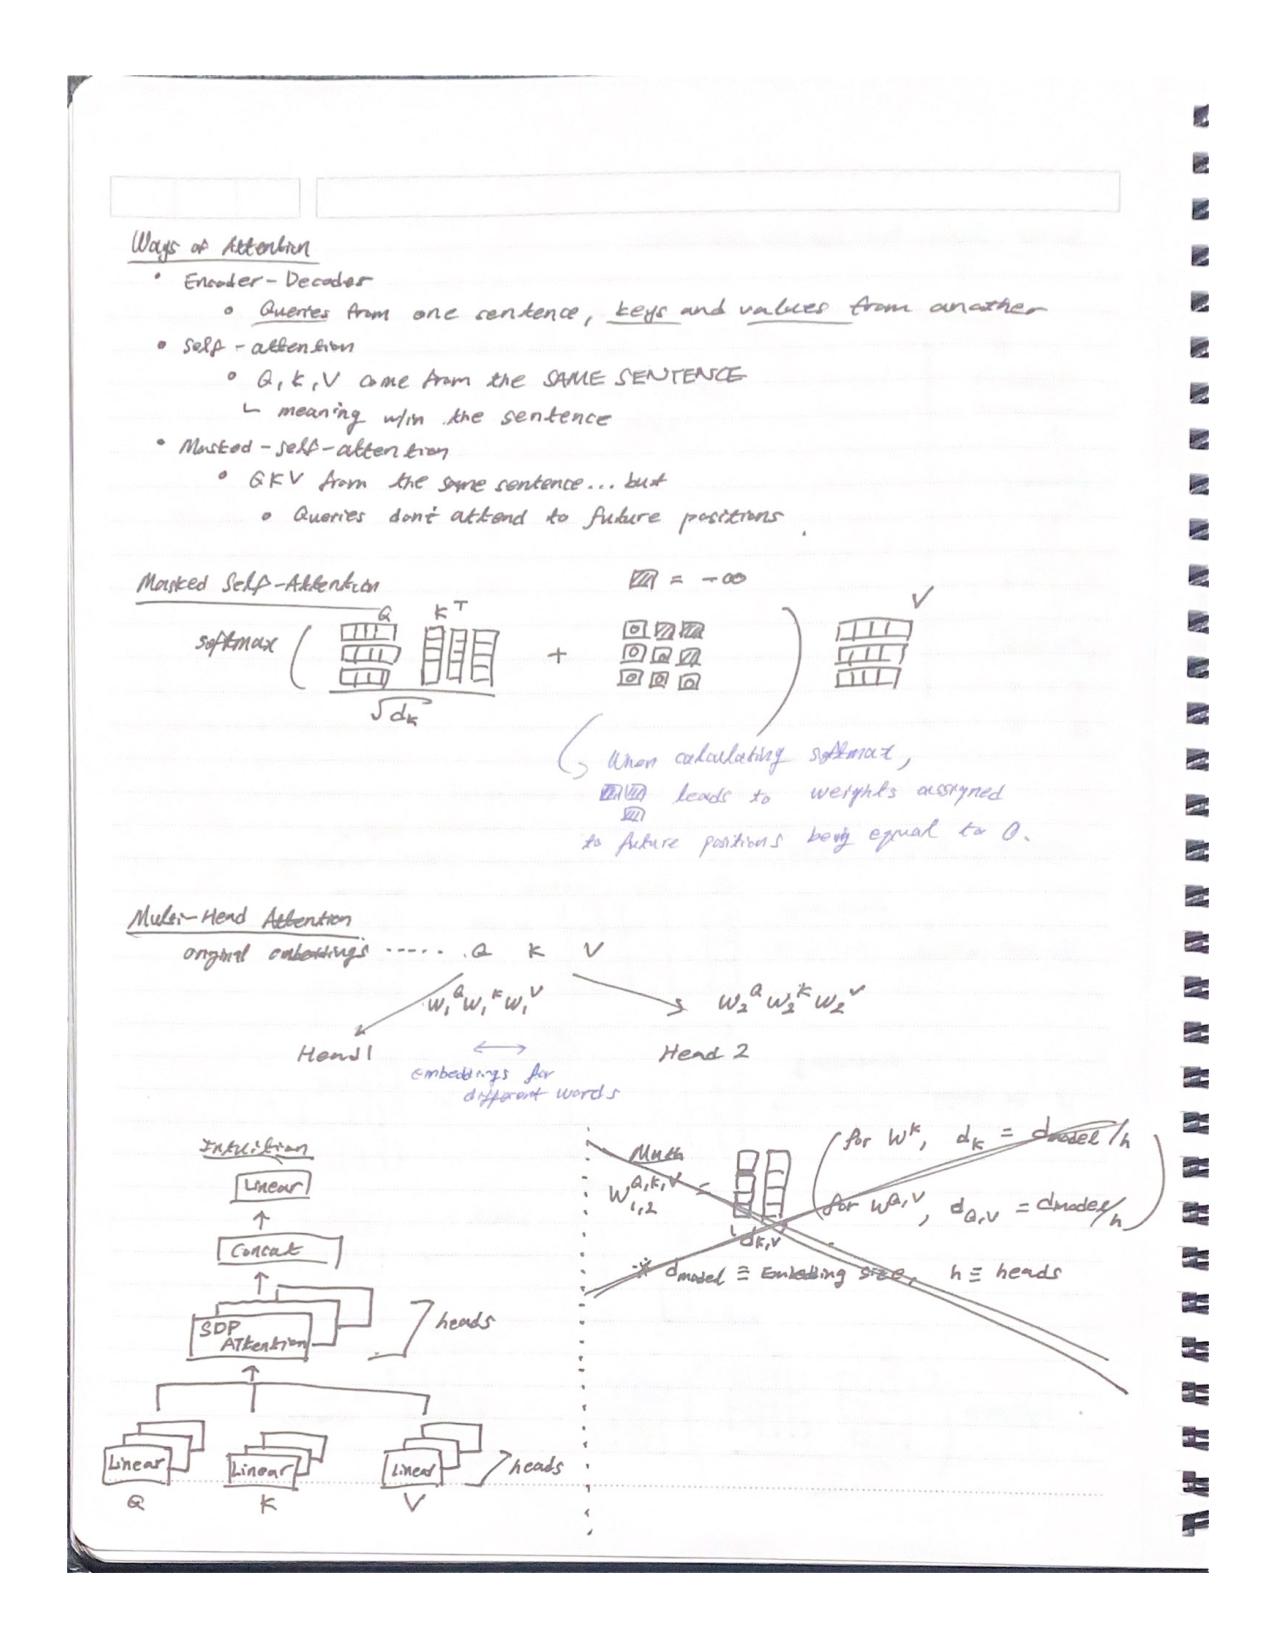 Ways of Attention
• Encoder-Decoder
∘ Queries from one sentence, keys and values from another
• Self-attention
∘ Q, K, V come from the SAME SENTENCE
↳ meaning w/in the sentence
• Masked-self-attention
∘ QKV from the same sentence... but
∘ Queries don't attend to future positions.
Masked Self-Attention
= -∞
Q K^T V
softmax ( + )
0
0 0
0 0 0
√d_k
When calculating softmax,
leads to weights assigned
to future positions being equal to 0.
Multi-Head Attention
original embeddings ..... Q K V
W_1^Q W_1^K W_1^V
W_2^Q W_2^K W_2^V
Head 1
Head 2
embeddings for
different words
Intuition
Linear
Concat
SDP
Attention
heads
Linear
Linear
Linear
heads
Q K V
Math
W_{1,2}^{Q,K,V} =
d_{K,V}
(for W^K, d_K = d_model/h
for W^{Q,V}, d_{Q,V} = d_model/h)
* d_model ≡ Embedding size, h ≡ heads